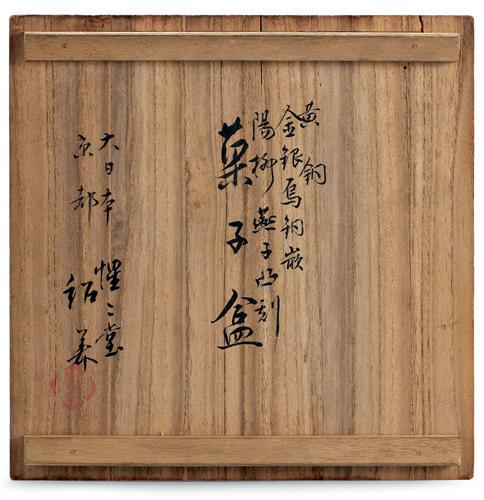 黄銅
金銀烏銅嵌
陽柳燕子凸刻
菓子盒
大日本
京都
惺々堂
紹美